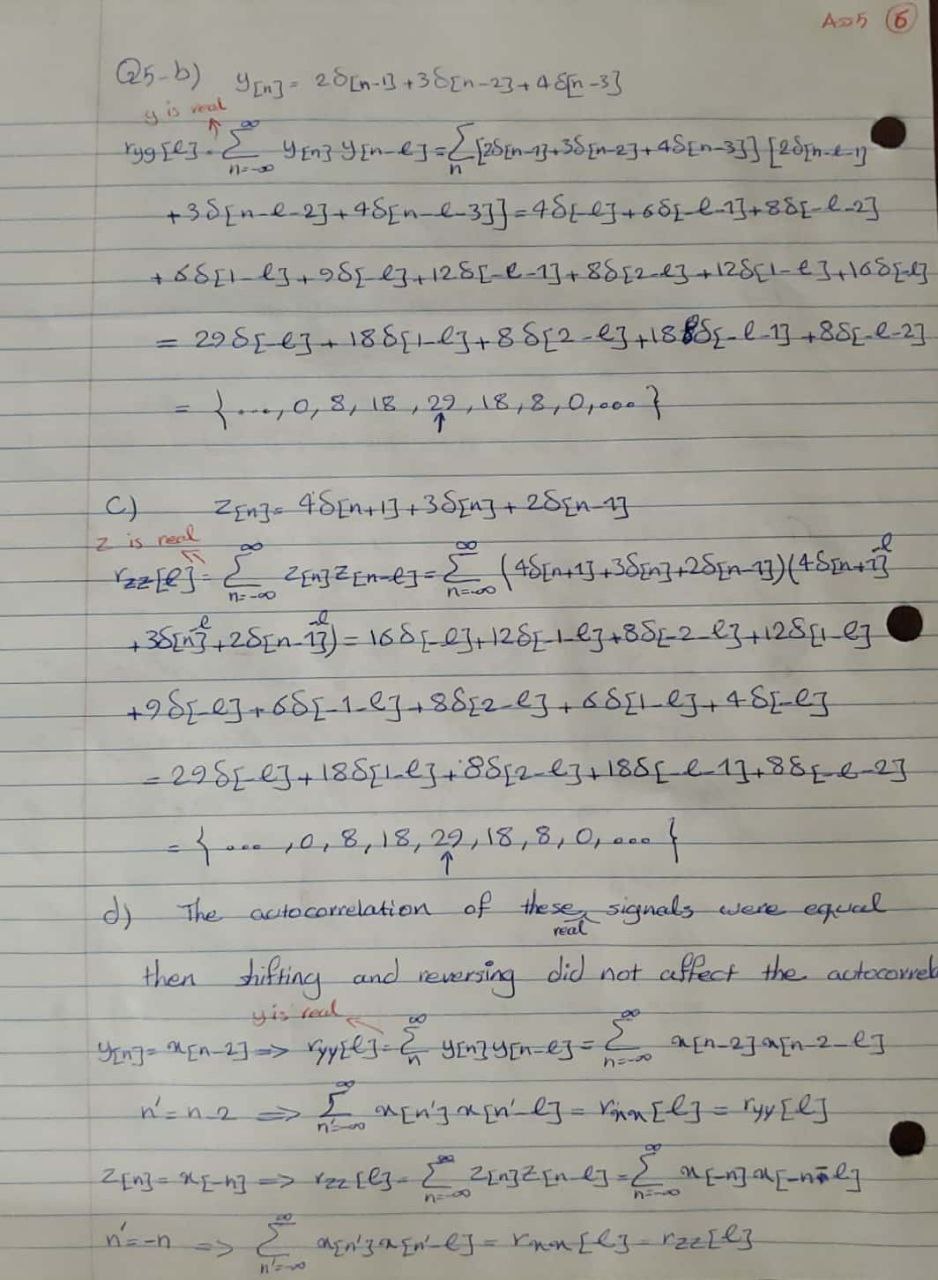 Ass5 6
Q5-b) y[n] = 2δ[n-1] + 3δ[n-2] + 4δ[n-3]
y is real
ryy[l] = Σ_{n=-∞}^{∞} y[n] y[n-l] = Σ_n [2δ[n-1]+3δ[n-2]+4δ[n-3]] [2δ[n-l-1]
+3δ[n-l-2]+4δ[n-l-3]] = 4δ[-l]+6δ[-l-1]+8δ[-l-2]
+6δ[1-l]+9δ[-l]+12δ[-l-1]+8δ[2-l]+12δ[1-l]+16δ[-l]
= 29δ[-l]+18δ[1-l]+8δ[2-l]+18δ[-l-1]+8δ[-l-2]
= {..., 0, 8, 18, 29, 18, 8, 0, ...}
↑
C) z[n] = 4δ[n+1]+3δ[n]+2δ[n-1]
z is real
rzz[l] = Σ_{n=-∞}^{∞} z[n] z[n-l] = Σ_{n=-∞}^{∞} (4δ[n+1]+3δ[n]+2δ[n-1])(4δ[n+1-l]
+3δ[n-l]+2δ[n-1-l]) = 16δ[-l]+12δ[-1-l]+8δ[-2-l]+12δ[1-l]
+9δ[-l]+6δ[-1-l]+8δ[2-l]+6δ[1-l]+4δ[-l]
= 29δ[-l]+18δ[1-l]+8δ[2-l]+18δ[-l-1]+8δ[-l-2]
= {..., 0, 8, 18, 29, 18, 8, 0, ...}
↑
d) The autocorrelation of these real signals were equal
then shifting and reversing did not affect the autocorrel
y is real
y[n] = x[n-2] => ryy[l] = Σ_n^{∞} y[n] y[n-l] = Σ_{n=-∞}^{∞} x[n-2] x[n-2-l]
n' = n-2 => Σ_{n'=-∞}^{∞} x[n'] x[n'-l] = rxx[l] = ryy[l]
z[n] = x[-n] => rzz[l] = Σ_{n=-∞}^{∞} z[n] z[n-l] = Σ_{n=-∞}^{∞} x[-n] x[-n-l]
n' = -n => Σ_{n'=-∞}^{∞} x[n'] x[n'-l] = rxx[l] = rzz[l]